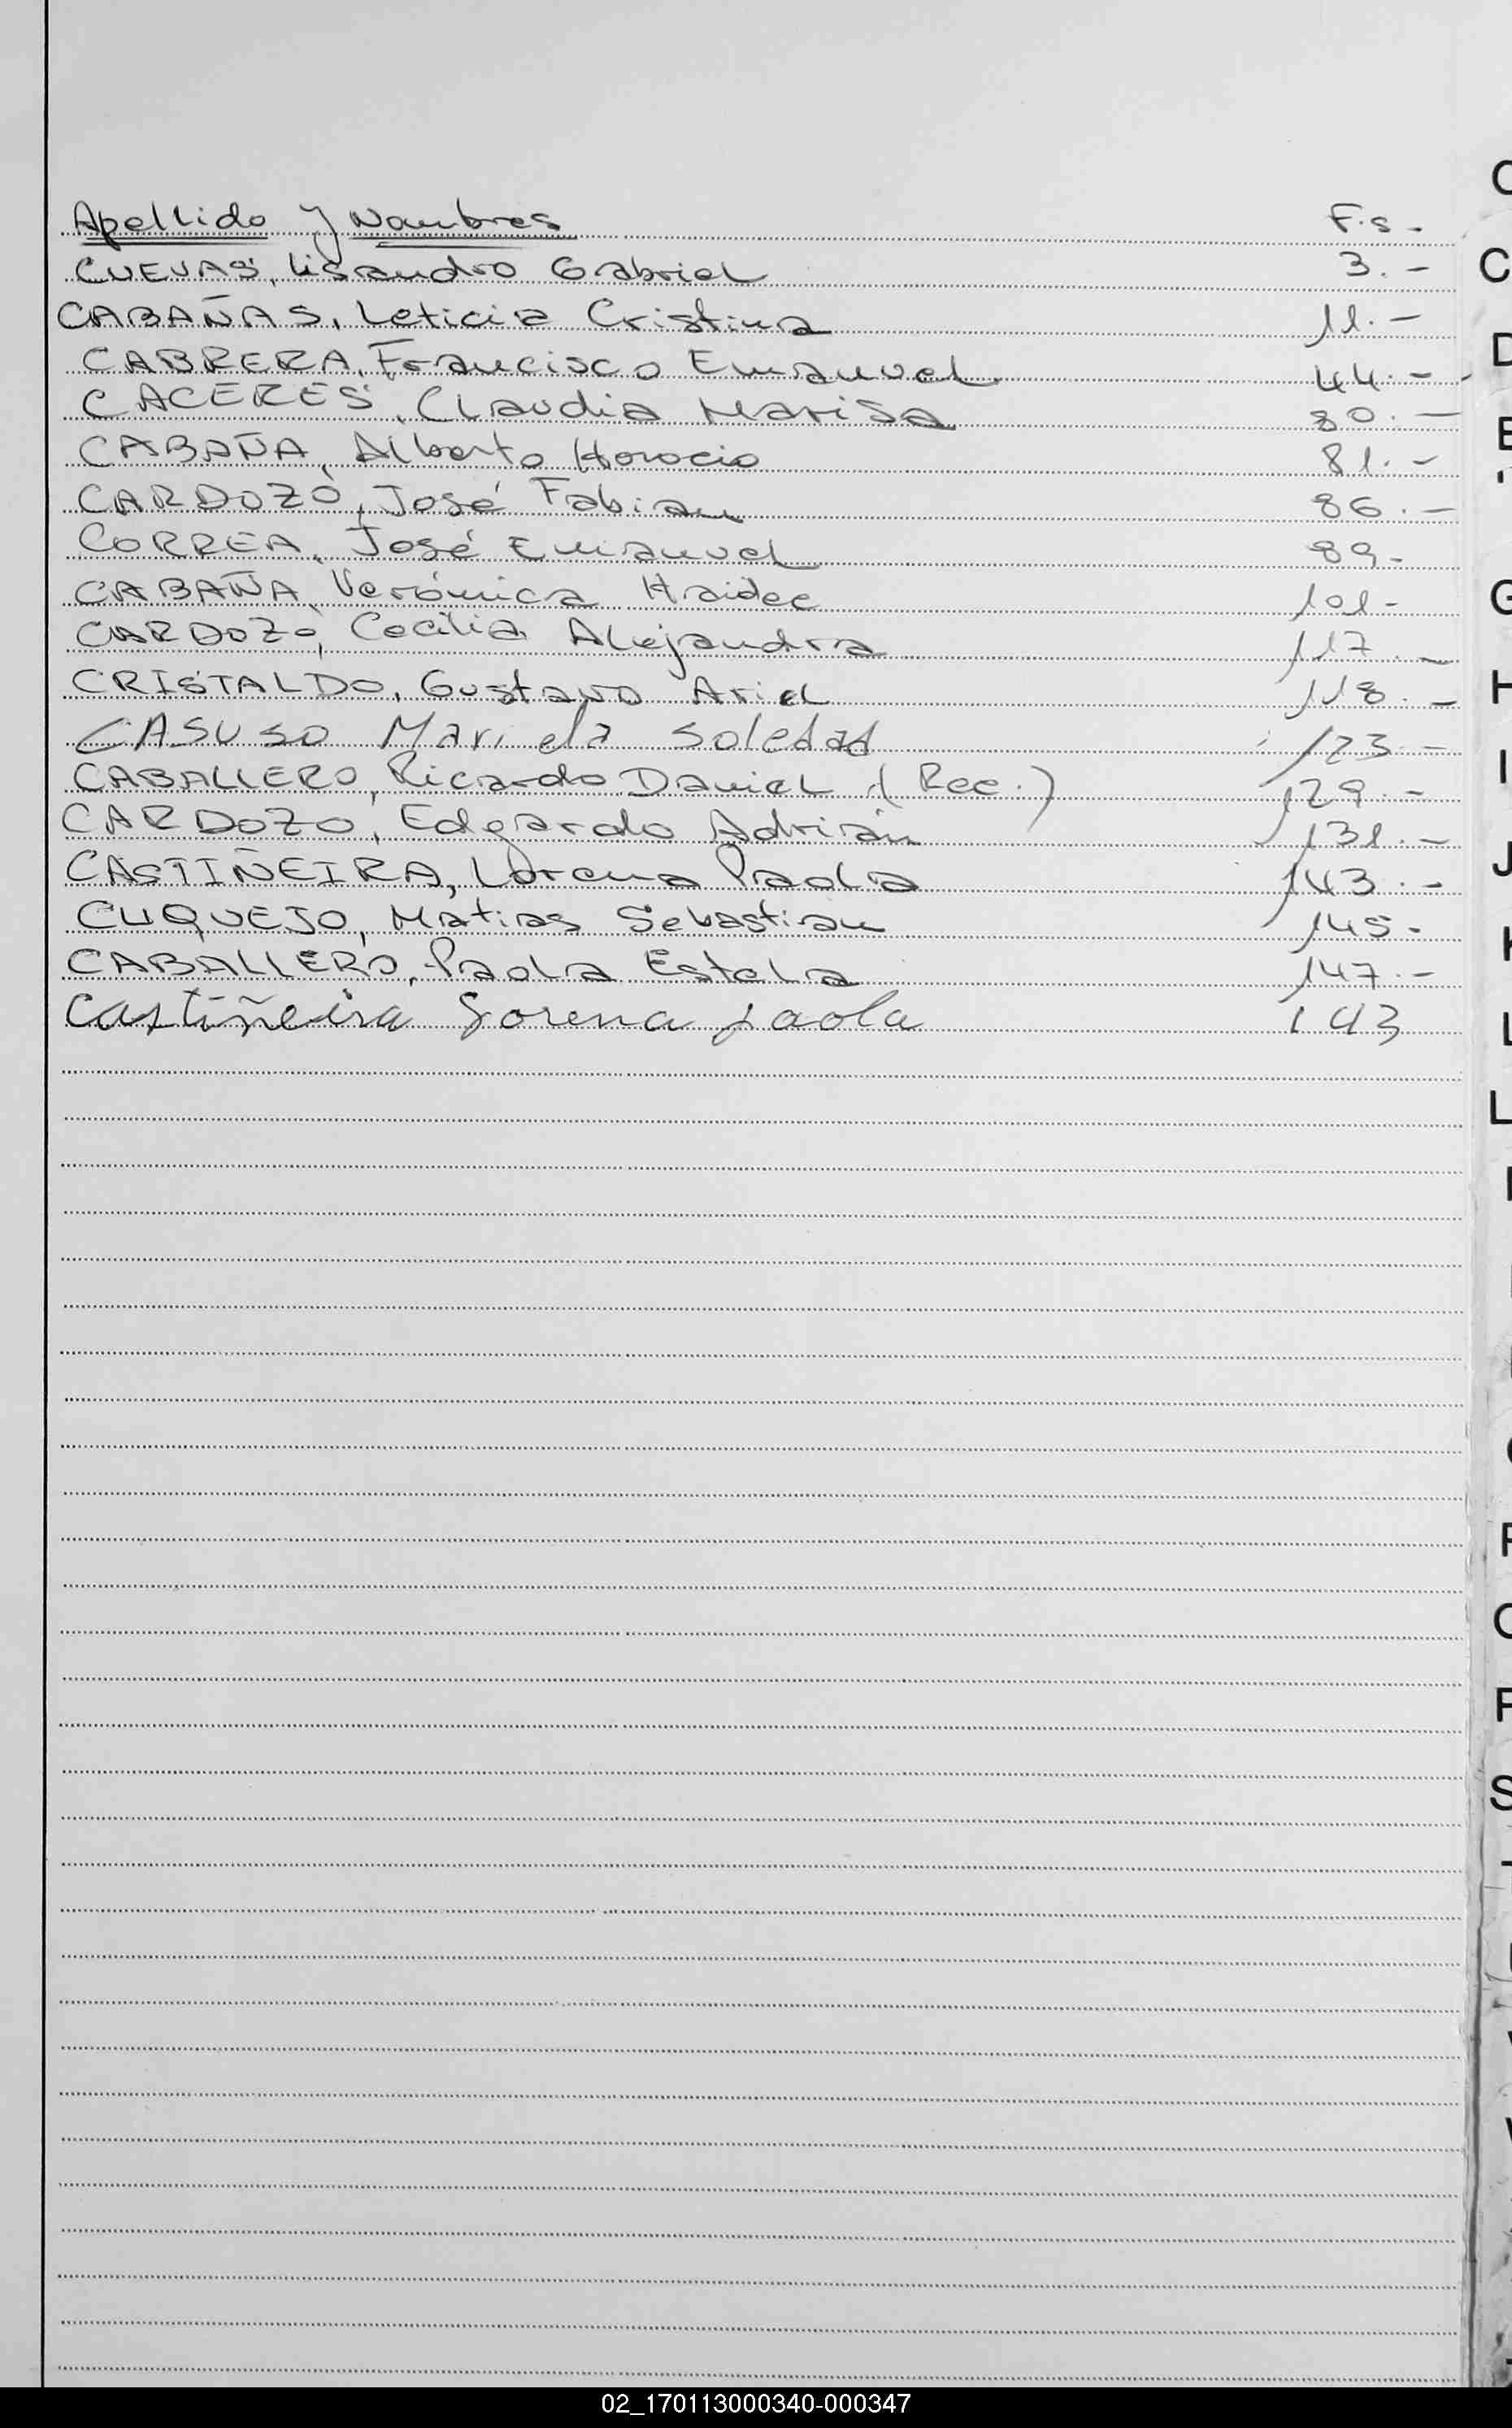 Apellido y Nombres F.s.-
CUEVAS, Lisandro Gabriel 3.-
CABAÑAS, Leticia Cristina 11.-
CABRERA, Francisco Emanuel 44.-
CACERES, Claudia Marisa 80.-
CABAÑA, Alberto Horacio 81.-
CARDOZO, José Fabian 86.-
CORREA, José Emanuel 89.-
CABAÑA, Verónica Haidee 101-
CARDOZO, Cecilia Alejandra 117.-
CRISTALDO, Gustavo Ariel 118.-
CASUSO Mariela Soledad 123.-
CABALLERO, Ricardo Daniel (Rec.) 129.-
CARDOZO, Edgardo Adrián 131.-
CASTIÑEIRA, Lorena Paola 143.-
CUQUEJO, Matias Sebastian 145.-
CABALLERO, Paola Estela 147.-
Castiñeira Lorena paola 143
C
D
G
H
I
J
L
S
02_170113000340-000347